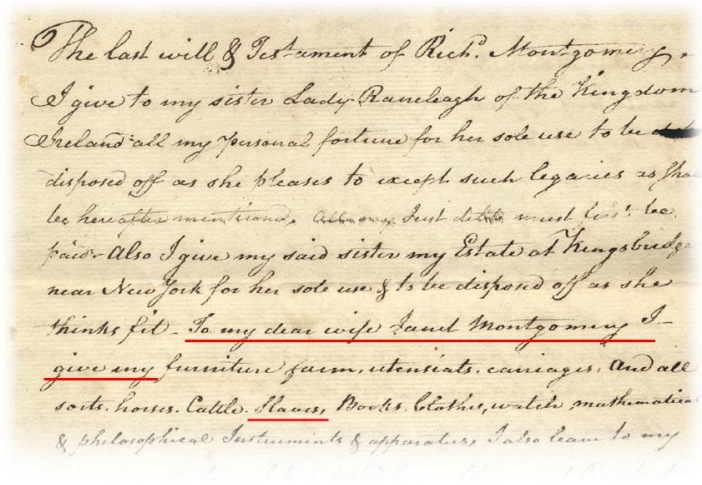 The last will & Testament of Richd. Montgomery.
I give to my sister Lady Raneleagh of the Kingdom
Ireland all my personal fortune for her sole use to be
disposed off as she pleases to except such legacies as shall
be hereafter mentioned, All my Just debts must first be
paid - Also I give my said sister my Estate at Kingsbridge
near New York for her sole use & to be disposed off as she
thinks fit - To my dear wife Janet Montgomery I -
give my furniture farm, utensials. carriages. And all
sorts. horses. Cattle. Slaves, Books. Clothes, watch mathematical
& philosophical Instruments & apparatus, I also leave to my